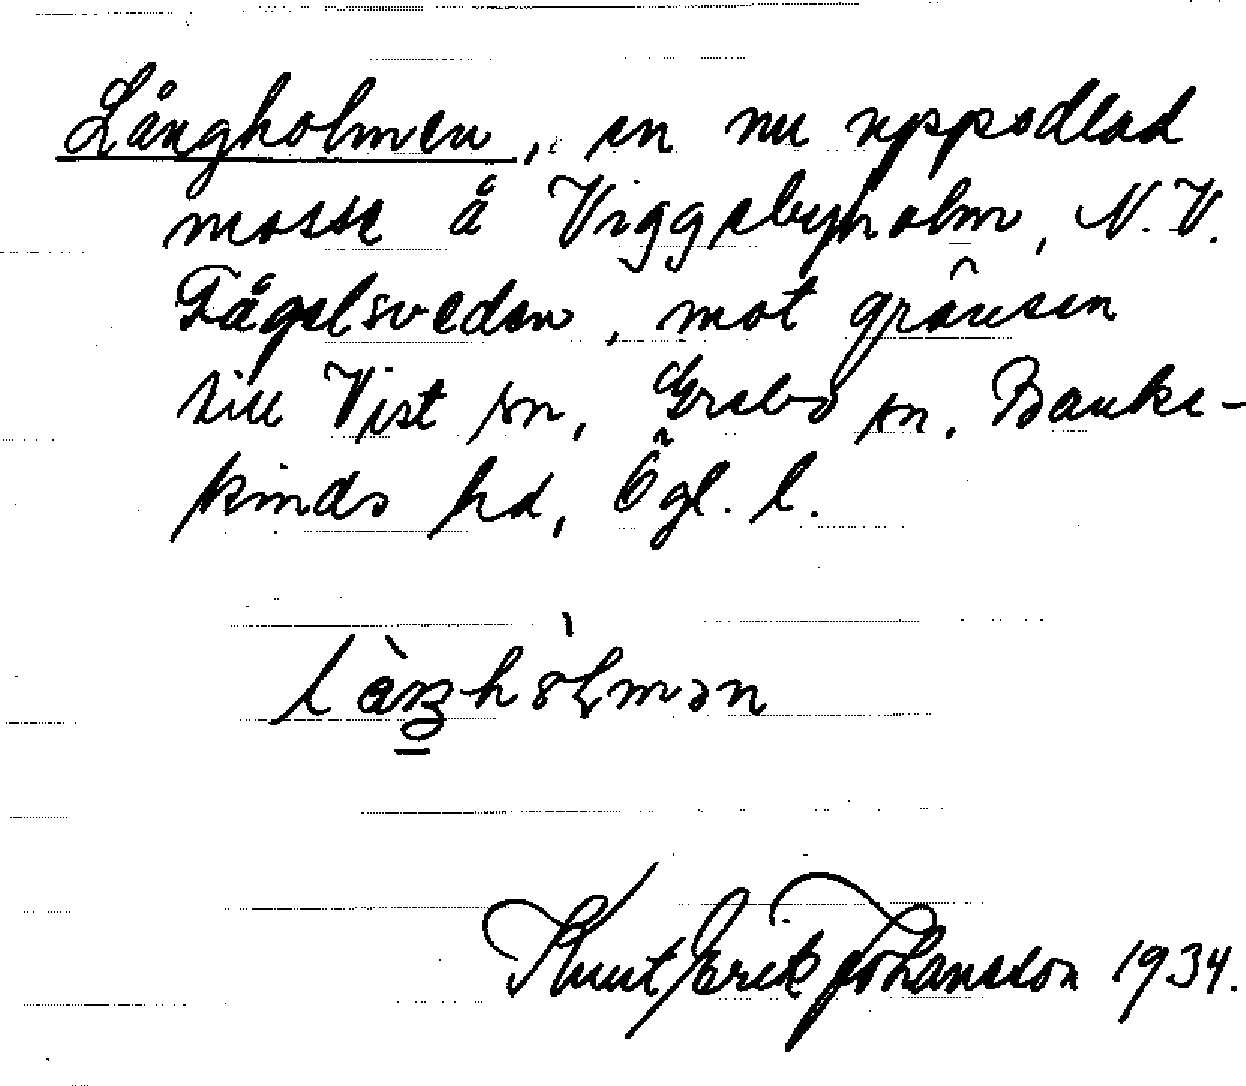 Långholmen, en nu uppodlad
mosse å Viggebyholm, N.V.
Fågelsveden, mot gränsen
till Vist sn, Grebo sn. Banke-
kinds hd, Ögl. l.
Knut Erik Johansson 1934.